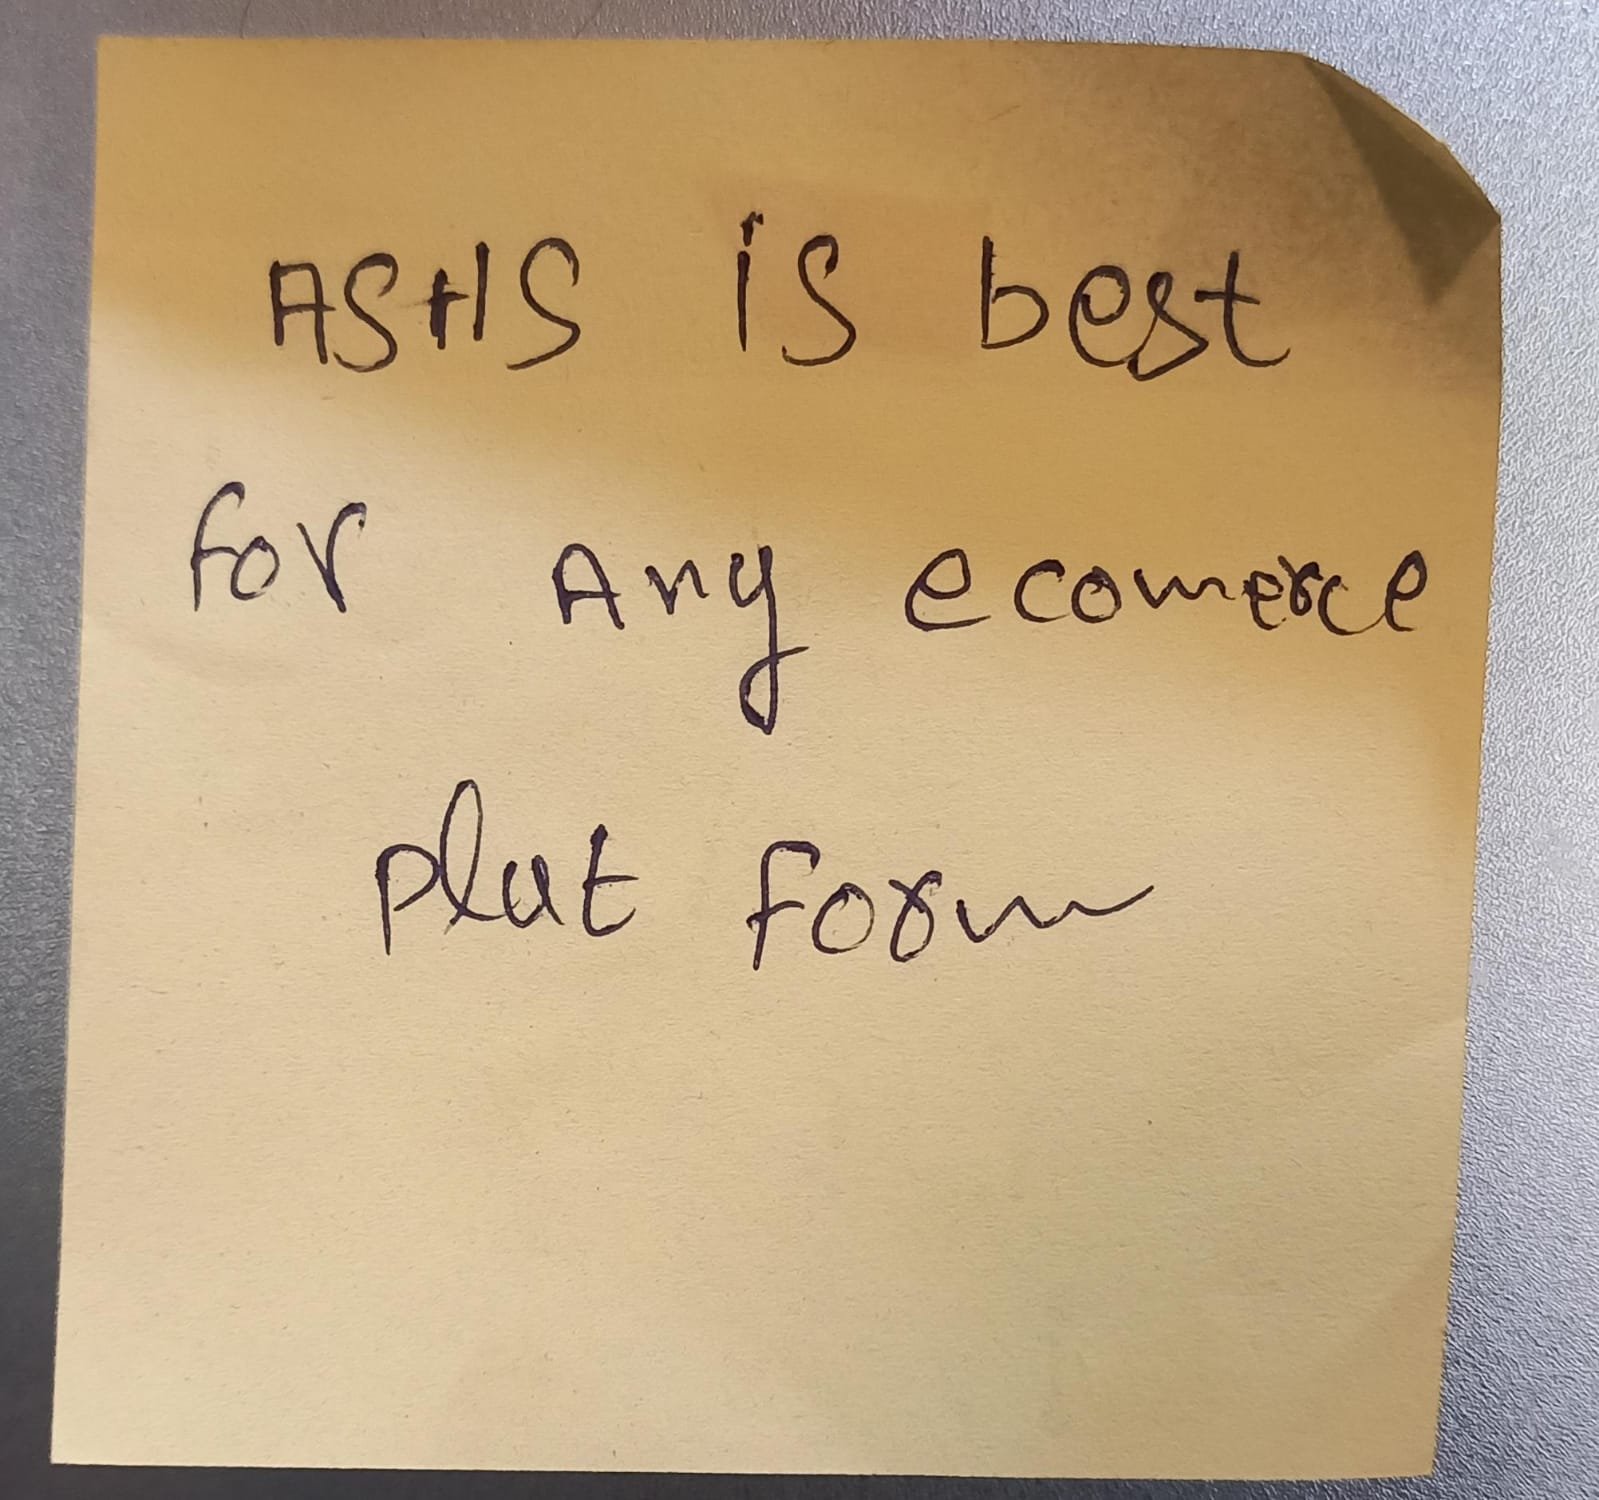 ASHS is best
for Any ecomerce
plat form